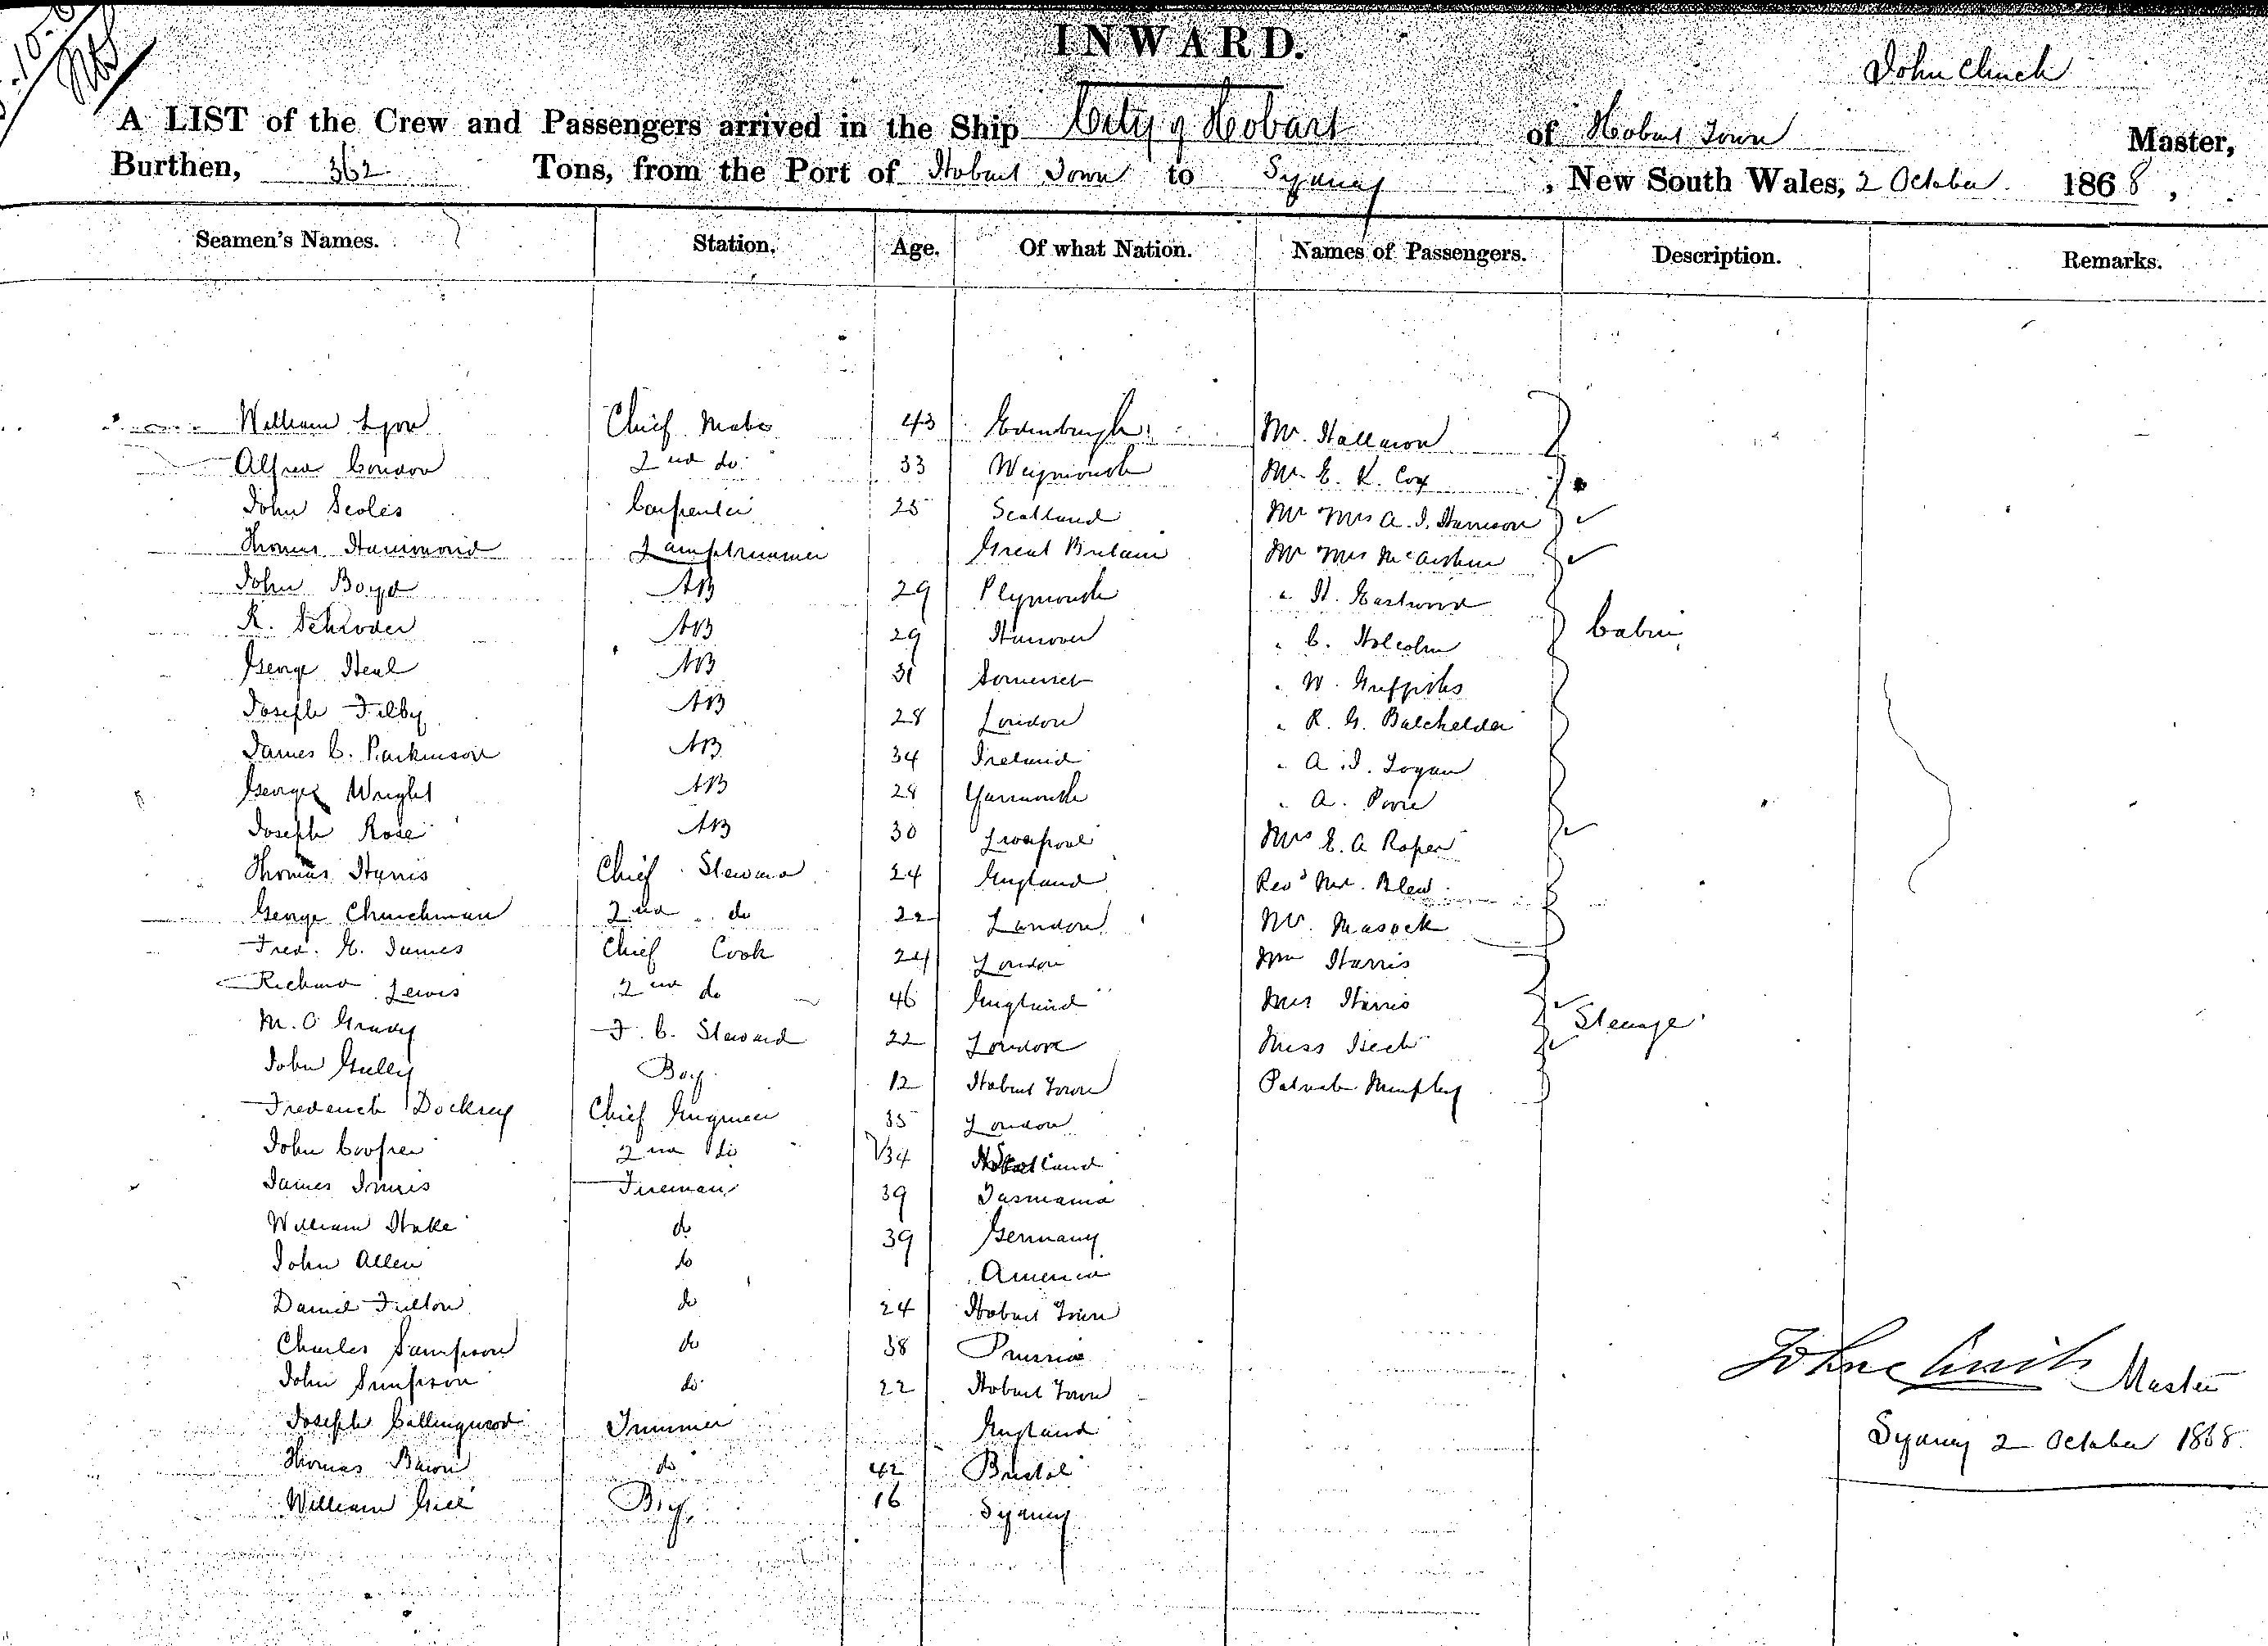 INWARD.
John Clinch
A LIST of the Crew and Passengers arrived in the Ship City of Hobart of Hobart Town Master,
Burthen, 362 Tons, from the Port of Hobart Town to Sydney, New South Wales, 2 October 1868,
Seamen's Names. Station. Age. Of what Nation. Names of Passengers. Description. Remarks.
William Lyon Chief Mate 43 Edinburgh Mr. Hallaron
Alfred Condon 2nd do 33 Weymouth Mr. E. K. Cox
John Scoles Carpenter 25 Scotland Mr Mrs A. I. Harrison
Thomas Hammond Lamptrimmer Great Britain Mr Mrs McArthur
John Boyd AB 29 Plymouth " H. Eastwood
R. Schroder AB 29 Hanover " C. Holcolm Cabin
George Heal AB 31 Somerset " W. Griffiths
Joseph Filby AB 28 London " R. G. Batchelder
James C. Parkinson AB 34 Ireland " A. I. Logan
George Wright AB 28 Yarmouth " A.
Joseph Rose AB 30 Liverpool Mrs E. A Roper
Thomas Harris Chief Steward 24 England Revd Mr. Blew
George Churchman 2nd do 22 London Mr. Masack
Fred. G. James Chief Cook 24 London Wm Harris
Richard Lewis 2nd do 46 England Mrs Harris
M. O Grady F. C. Steward 22 London Miss Steerage
John Gully Boy 12 Hobart Town Patrick Murphy
Frederick Dockrey Chief Engineer 35 London
John Cooper 2nd do 34 Scotland
James Innis Fireman 39 Tasmania
William Hake do 39 Germany
John Allen do America
Daniel Fulton do 24 Hobart Town
Charles Sampson do 38 Prussia
John Simpson do 22 Hobart Town
John Clinch Master
Joseph Collingwood Trimmer England
Sydney 2 October 1868
Thomas Bacon do 42 Bristol
William Gill Boy 16 Sydney